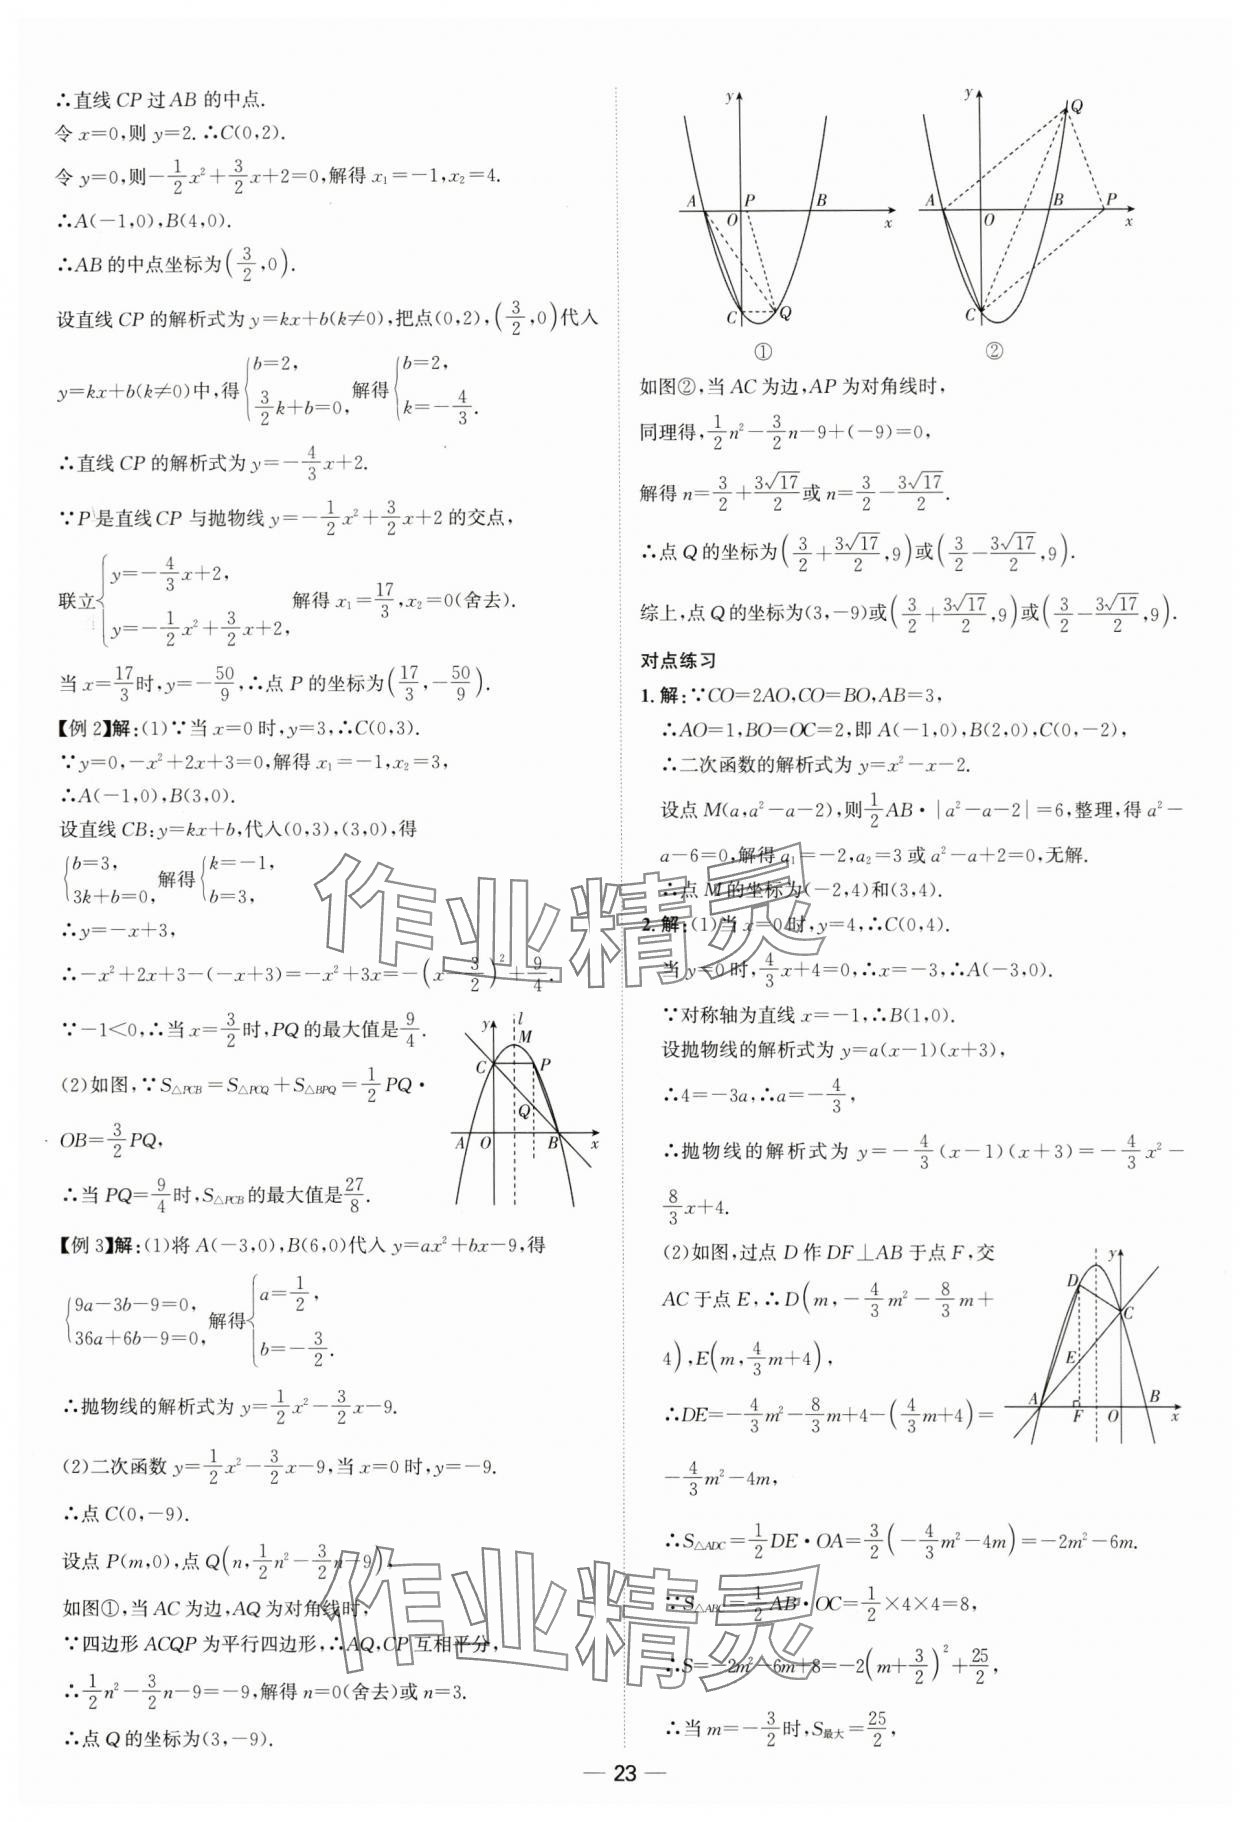 ∴直线 CP 过 AB 的中点.
令 x=0,则 y=2. ∴C(0,2).
令 y=0,则-1/2x²+3/2x+2=0,解得 x₁=-1,x₂=4.
∴A(-1,0),B(4,0).
∴AB 的中点坐标为(3/2,0).
设直线 CP 的解析式为 y=kx+b(k≠0),把点(0,2),(3/2,0)代入
y=kx+b(k≠0)中,得{b=2, 3/2k+b=0, 解得{b=2, k=-4/3.
∴直线 CP 的解析式为 y=-4/3x+2.
∵P 是直线 CP 与抛物线 y=-1/2x²+3/2x+2 的交点,
联立{y=-4/3x+2, y=-1/2x²+3/2x+2, 解得 x₁=17/3,x₂=0(舍去).
当 x=17/3时,y=-50/9,∴点 P 的坐标为(17/3,-50/9).
【例 2】解:(1)∵当 x=0 时,y=3,∴C(0,3).
∵y=0,-x²+2x+3=0,解得 x₁=-1,x₂=3,
∴A(-1,0),B(3,0).
设直线 CB:y=kx+b,代入(0,3),(3,0),得
{b=3, 3k+b=0, 解得{k=-1, b=3,
∴y=-x+3,
∴-x²+2x+3-(-x+3)=-x²+3x=-(x-3/2)²+9/4.
∵-1<0,∴当 x=3/2时,PQ 的最大值是9/4.
(2)如图,∵S△PCB=S△PCQ+S△BPQ=1/2PQ·
OB=3/2PQ,
∴当 PQ=9/4时,S△PCB的最大值是27/8.
y
l
M
C
P
Q
A
O
B
x
【例 3】解:(1)将 A(-3,0),B(6,0)代入 y=ax²+bx-9,得
{9a-3b-9=0, 36a+6b-9=0, 解得{a=1/2, b=-3/2.
∴抛物线的解析式为 y=1/2x²-3/2x-9.
(2)二次函数 y=1/2x²-3/2x-9,当 x=0 时,y=-9.
∴点 C(0,-9).
设点 P(m,0),点 Q(n,1/2n²-3/2n-9),
如图①,当 AC 为边,AQ 为对角线时,
∵四边形 ACQP 为平行四边形,∴AQ,CP 互相平分,
∴1/2n²-3/2n-9=-9,解得 n=0(舍去)或 n=3.
∴点 Q 的坐标为(3,-9).
y
A
O
P
B
x
C
Q
①
y
Q
A
O
B
P
x
C
②
如图②,当 AC 为边,AP 为对角线时,
同理得,1/2n²-3/2n-9+(-9)=0,
解得 n=3/2+3√17/2或 n=3/2-3√17/2.
∴点 Q 的坐标为(3/2+3√17/2,9)或(3/2-3√17/2,9).
综上,点 Q 的坐标为(3,-9)或(3/2+3√17/2,9)或(3/2-3√17/2,9).
对点练习
1. 解:∵CO=2AO,CO=BO,AB=3,
∴AO=1,BO=OC=2,即 A(-1,0),B(2,0),C(0,-2),
∴二次函数的解析式为 y=x²-x-2.
设点 M(a,a²-a-2),则1/2AB·|a²-a-2|=6,整理,得 a²-
a-6=0,解得 a₁=-2,a₂=3 或 a²-a+2=0,无解.
∴点 M 的坐标为(-2,4)和(3,4).
2. 解:(1)当 x=0 时,y=4,∴C(0,4).
当 y=0 时,4/3x+4=0,∴x=-3,∴A(-3,0).
∵对称轴为直线 x=-1,∴B(1,0).
设抛物线的解析式为 y=a(x-1)(x+3),
∴4=-3a,∴a=-4/3,
∴抛物线的解析式为 y=-4/3(x-1)(x+3)=-4/3x²-
8/3x+4.
(2)如图,过点 D 作 DF⊥AB 于点 F,交
AC 于点 E,∴D(m,-4/3m²-8/3m+
4),E(m,4/3m+4),
∴DE=-4/3m²-8/3m+4-(4/3m+4)=
-4/3m²-4m,
y
D
C
E
A
F
O
B
x
∴S△ADC=1/2DE·OA=3/2(-4/3m²-4m)=-2m²-6m.
∵S△ABC=1/2AB·OC=1/2×4×4=8,
∴S=-2m²-6m+8=-2(m+3/2)²+25/2,
∴当 m=-3/2时,S最大=25/2,
作业精灵
作业精灵
— 23 —